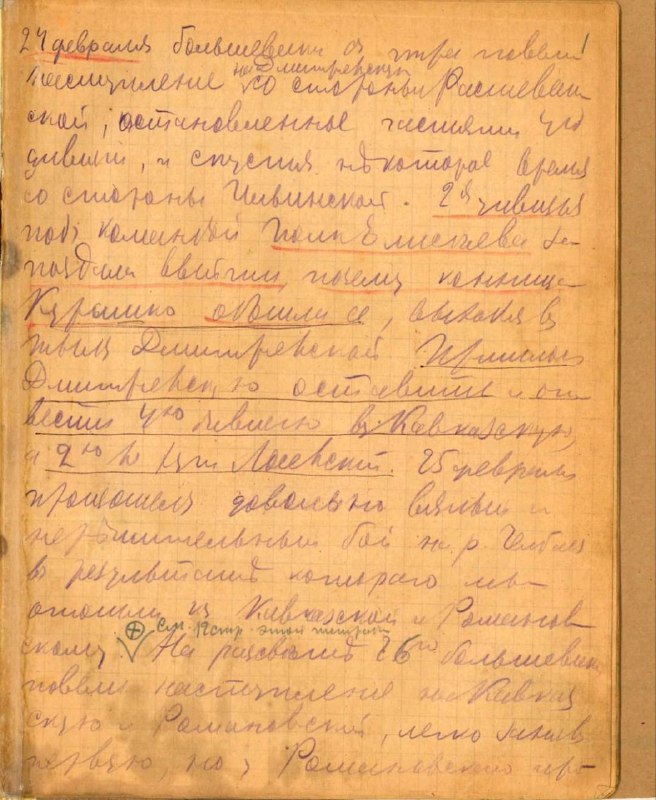 24 февраля большевики с утра повели
наступление на Дмитревскую со стороны Расшеват-
ской, остановленное частями 4й
дивизии, и спустя некоторое время
со стороны Ильинской. 2я дивизия
под командой Полк Елисеева за-
поздала выйти, почему конница
обошла ее, выходя в
тыл Дмитревской. Пришлось
Дмитревскую оставить и от-
вести 4ую дивизию в Кавказскую,
а 2ую к Лосевской. 25 февраля
произошел довольно вялый и
нерешительный бой на р. Челбас
в результате которого мы
отошли к Кавказской и Романов-
скому.
См. стр. этой тетради
На рассвете 26го большевики
повели наступление на Кавказ
скую и Романовский, легко заняв
первую, но у Романовского про-